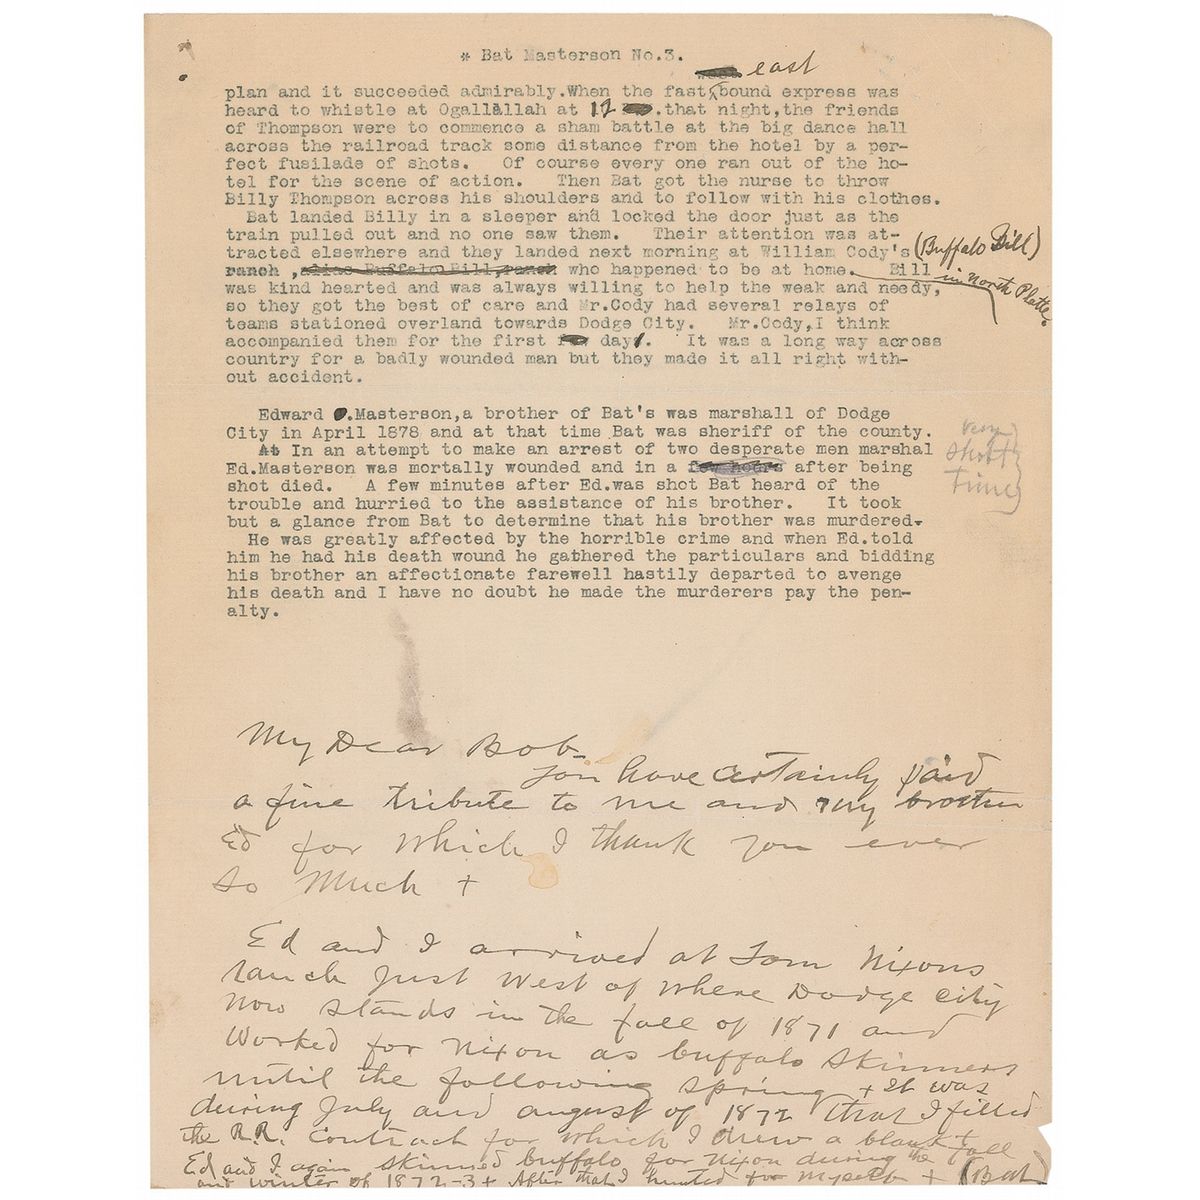 * Bat Masterson No.3.
east
plan and it succeeded admirably.When the fast bound express was
heard to whistle at Ogallallah at 12 .that night,the friends
of Thompson were to commence a sham battle at the big dance hall
across the railroad track some distance from the hotel by a per-
fect fusilade of shots. Of course every one ran out of the ho-
tel for the scene of action. Then Bat got the nurse to throw
Billy Thompson across his shoulders and to follow with his clothes.
Bat landed Billy in a sleeper and locked the door just as the
train pulled out and no one saw them. Their attention was at-
tracted elsewhere and they landed next morning at William Cody's (Buffalo Bill)
ranch ,alias Buffalo Bill,ranch who happened to be at home. Bill in North Platte.
was kind hearted and was always willing to help the weak and needy,
so they got the best of care and Mr.Cody had several relays of
teams stationed overland towards Dodge City. Mr.Cody,I think
accompanied them for the first day. It was a long way across
country for a badly wounded man but they made it all right with-
out accident.
Edward .Masterson,a brother of Bat's was marshall of Dodge
City in April 1878 and at that time Bat was sheriff of the county.
At In an attempt to make an arrest of two desperate men marshal
Ed.Masterson was mortally wounded and in a few hours after being
very
short
time
shot died. A few minutes after Ed.was shot Bat heard of the
trouble and hurried to the assistance of his brother. It took
but a glance from Bat to determine that his brother was murdered.
He was greatly affected by the horrible crime and when Ed.told
him he had his death wound he gathered the particulars and bidding
his brother an affectionate farewell hastily departed to avenge
his death and I have no doubt he made the murderers pay the pen-
alty.
My Dear Bob-
You have certainly paid
a fine tribute to me and my brother
Ed for which I thank you ever
so much +
Ed and I arrived at Tom Nixons
ranch just West of where Dodge City
now stands in the fall of 1871 and
worked for Nixon as buffalo skinners
until the following spring + It was
during July and august of 1872 that I filled
the R.R. contract for which I drew a blank +
Ed and I again skinned buffalo for Nixon during the fall
and winter of 1872-3 + After that I hunted for myself + (Bat)